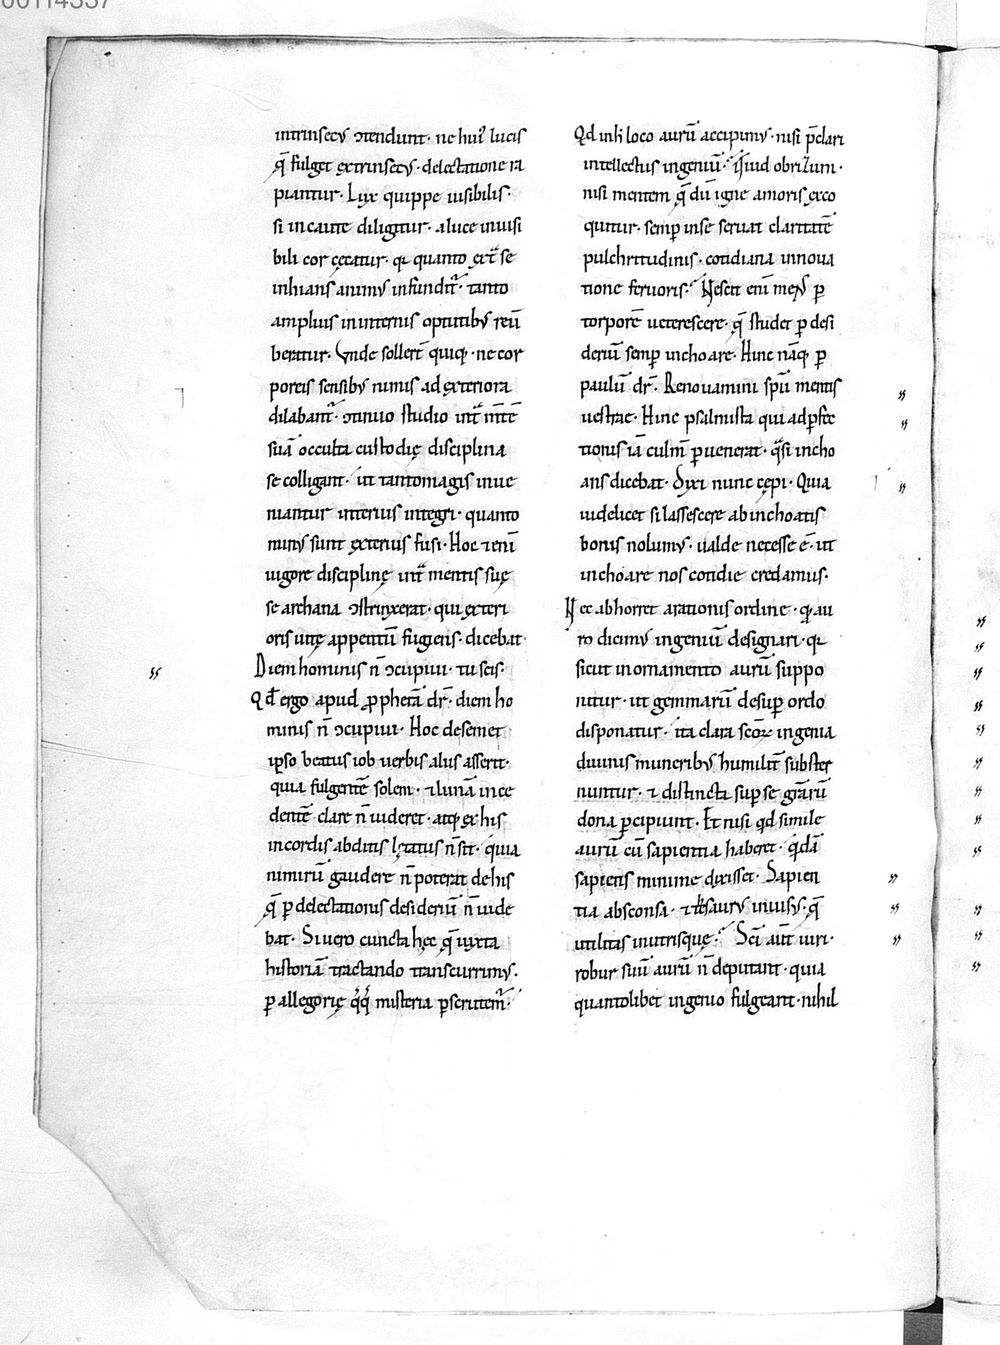 00114337
intrinsecꝰ ɔtendunt· ne huiꝰ lucis
q̄ fulget extrinsecꝰ· delectatione ra
piantur· Lux quippe uisibilis·
si incaute diligitur· a luce inuisi
bili cor cęcatur· qꝛ quanto ext̄ se
inhians animꝰ infundit᷑· tanto
amplius in internis optutibꝰ reū
beratur· Vnde sollert̄ quiqꝫ· ne cor
poreis sensibꝰ nimis ad exteriora
dilabant᷑· ɔtinuo studio int̄ mēte
suā occulta custodię disciplina
se colligant· ut tanto magis inue
niantur interius integri· quanto
minꝰ sunt exterius fusi· Hoc etenī
uigore disciplinę int̄ mentis suę
se archana ɔstrinxerat· qui exteri
oris uitę appetitū fugiens· dicebat·
Diem hominis ñ ɔcupiui· tu scis·
Qđ ergo apud ꝓphetā dr̄· diem ho
minis ñ ɔcupiui· Hoc de semet
ipso beatus iob uerbis aliis asserit·
quia fulgentē solem· ⁊ lunā ince
dentē clare ñ uideret· atqꝫ ex his
in cordis abditis lętatus ñ sit· quia
nimirū gaudere ñ poterat de his
q̄ ꝑ delectationis desideriū ñ uide
bat· Si uero cuncta hęc q̄ iuxta
historiā tractando transcurrimꝰ·
ꝑ allegorię qͦqꝫ misteria ꝑscrutem᷑·
Qd in h̄ loco aurū accipimꝰ· nisi p̄clari
intellectus ingeniū· Quid obrizum·
nisi mentem q̄ dū igne amoris exco
quitur· semꝑ in se seruat claritatē
pulchritudinis· cotidiana innoua
tione feruoris· Nescit enī mens ꝑ
torporē ueterescere· q̄ studet ꝑ desi
deriū semꝑ inchoare· Hinc nāqꝫ ꝑ
paulū dr̄· Renouamini spū mentis
uestrae· Hinc psalmista qui ad ꝑfec
tionis iā culm̄ ꝑuenerat· qͣsi incho
ans dicebat· Dixi nunc cępi· Quia
uidelicet si lassescere ab inchoatis
bonis nolumꝰ· ualde necesse ē· ut
inchoare nos cotidie credamus·
Nec abhorret a rationis ordine· qꝛ au
ro dicimꝰ ingeniū designari· qꝛ
sicut in ornamento aurū suppo
nitur· ut gemmarū desuꝑ ordo
disponatur· ita clara scōꝝ ingenia
diuinis muneribꝰ humilit̄ subster
nuntur· ⁊ distincta suꝑ se gr̄arū
dona ꝑcipiunt· Et nisi qd simile
aurū cū sapientia haberet· qͥdā
sapiens minime dixisset· Sapien
tia absconsa· ⁊ thesaurꝰ inuisꝰ· q̄
utilitas in utrisque· Sc̄i aut̄ uiri·
robur suū aurū ñ deputant· quia
quantolibet ingenio fulgeant· nihil